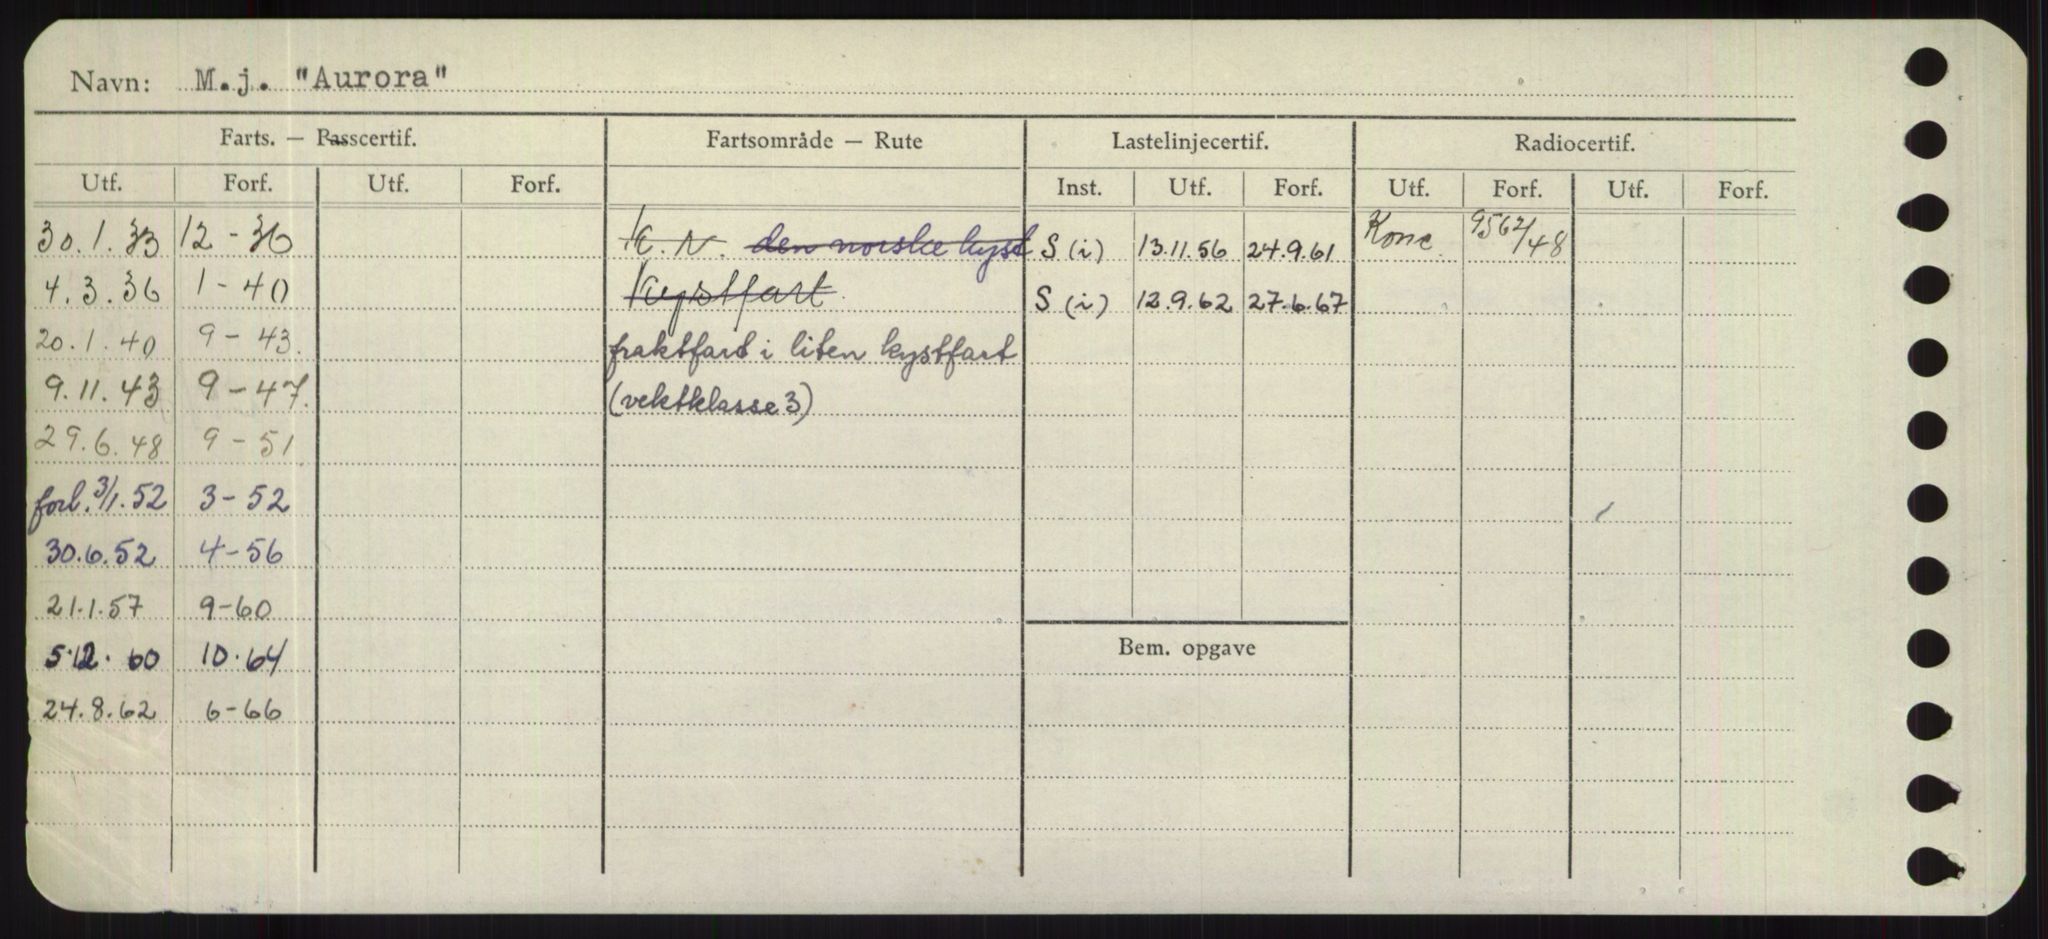 Navn: M.j. "Aurora"
Farts. — Passcertif. Fartsområde — Rute Lastelinjecertif. Radiocertif.
Utf. Forf. Utf. Forf. Inst. Utf. Forf. Utf. Forf. Utf. Forf.
30.1.33 12 - 36 K.N. den norske kyst S (i) 13.11.56 24.9.61 Konc. 9562/48
4.3.36 1 - 40 Kystfart S (i) 12.9.62 27.6.67
20.1.40 9 - 43. fraktfart i liten kystfart
9.11.43 9 - 47. (vektklasse 3)
29.6.48 9 - 51
forl. 3/1.52 3 - 52
30.6.52 4 - 56
21.1.57 9-60
5.12.60 10.64
Bem. opgave
24.8.62 6-66